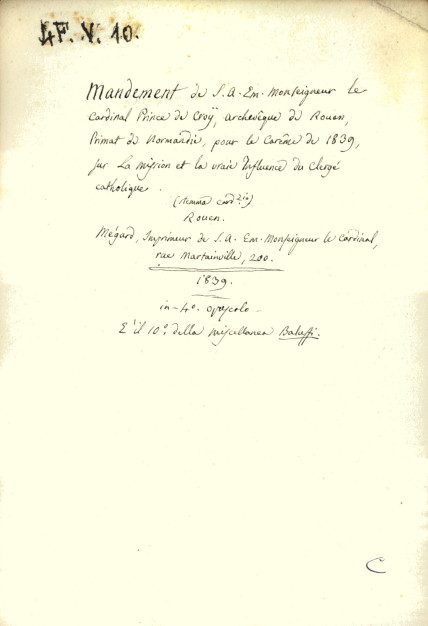 4F. V. 10.
Mandement de S. A. Em. Monseigneur le
Cardinal Prince de Croÿ, archevêque de Rouen,
Primat de Normandie, pour le Carême de 1839,
sur La Mission et la vraie Influence du Clergé
catholique.
(stemma card.lio)
Rouen.
Mégard, Imprimeur de S. A. Em. Monseigneur le Cardinal,
rue Martainville, 200.
1839.
in-4º. opuscolo
E'il 10º. della miscellanea Baluffi.
C